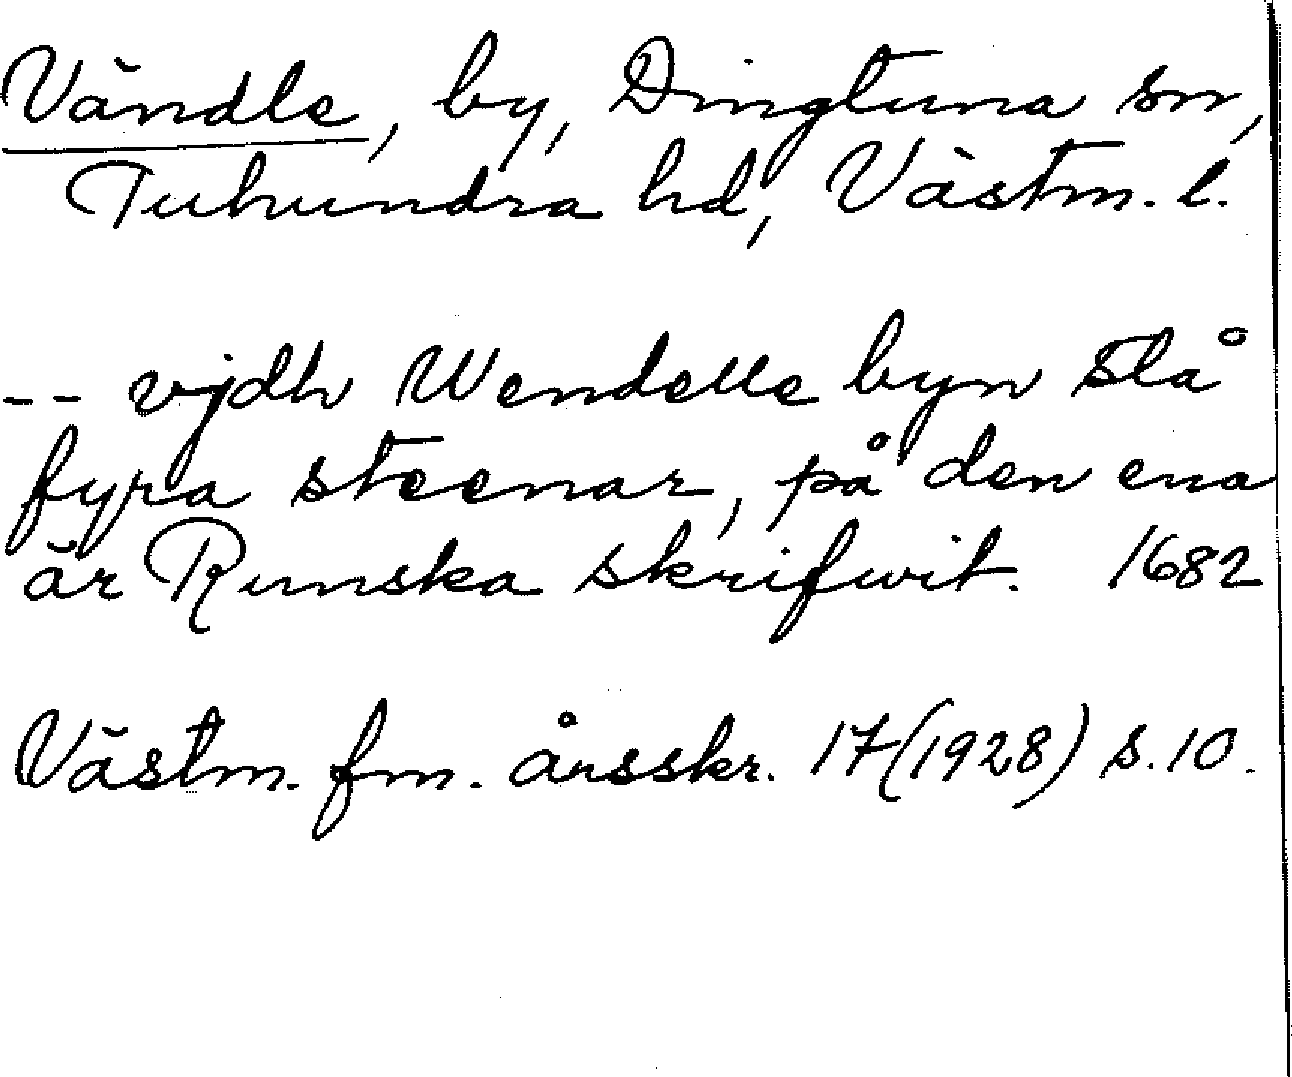 Vändle, by, Dingtuna sn,
Tuhundra hd, Västm. l.
-- vjdh Wendelle byn stå
fyra steenar, på den ena
är Runska skrifwit. 1682
Västm. fm. årsskr. 17 (1928) s. 10.